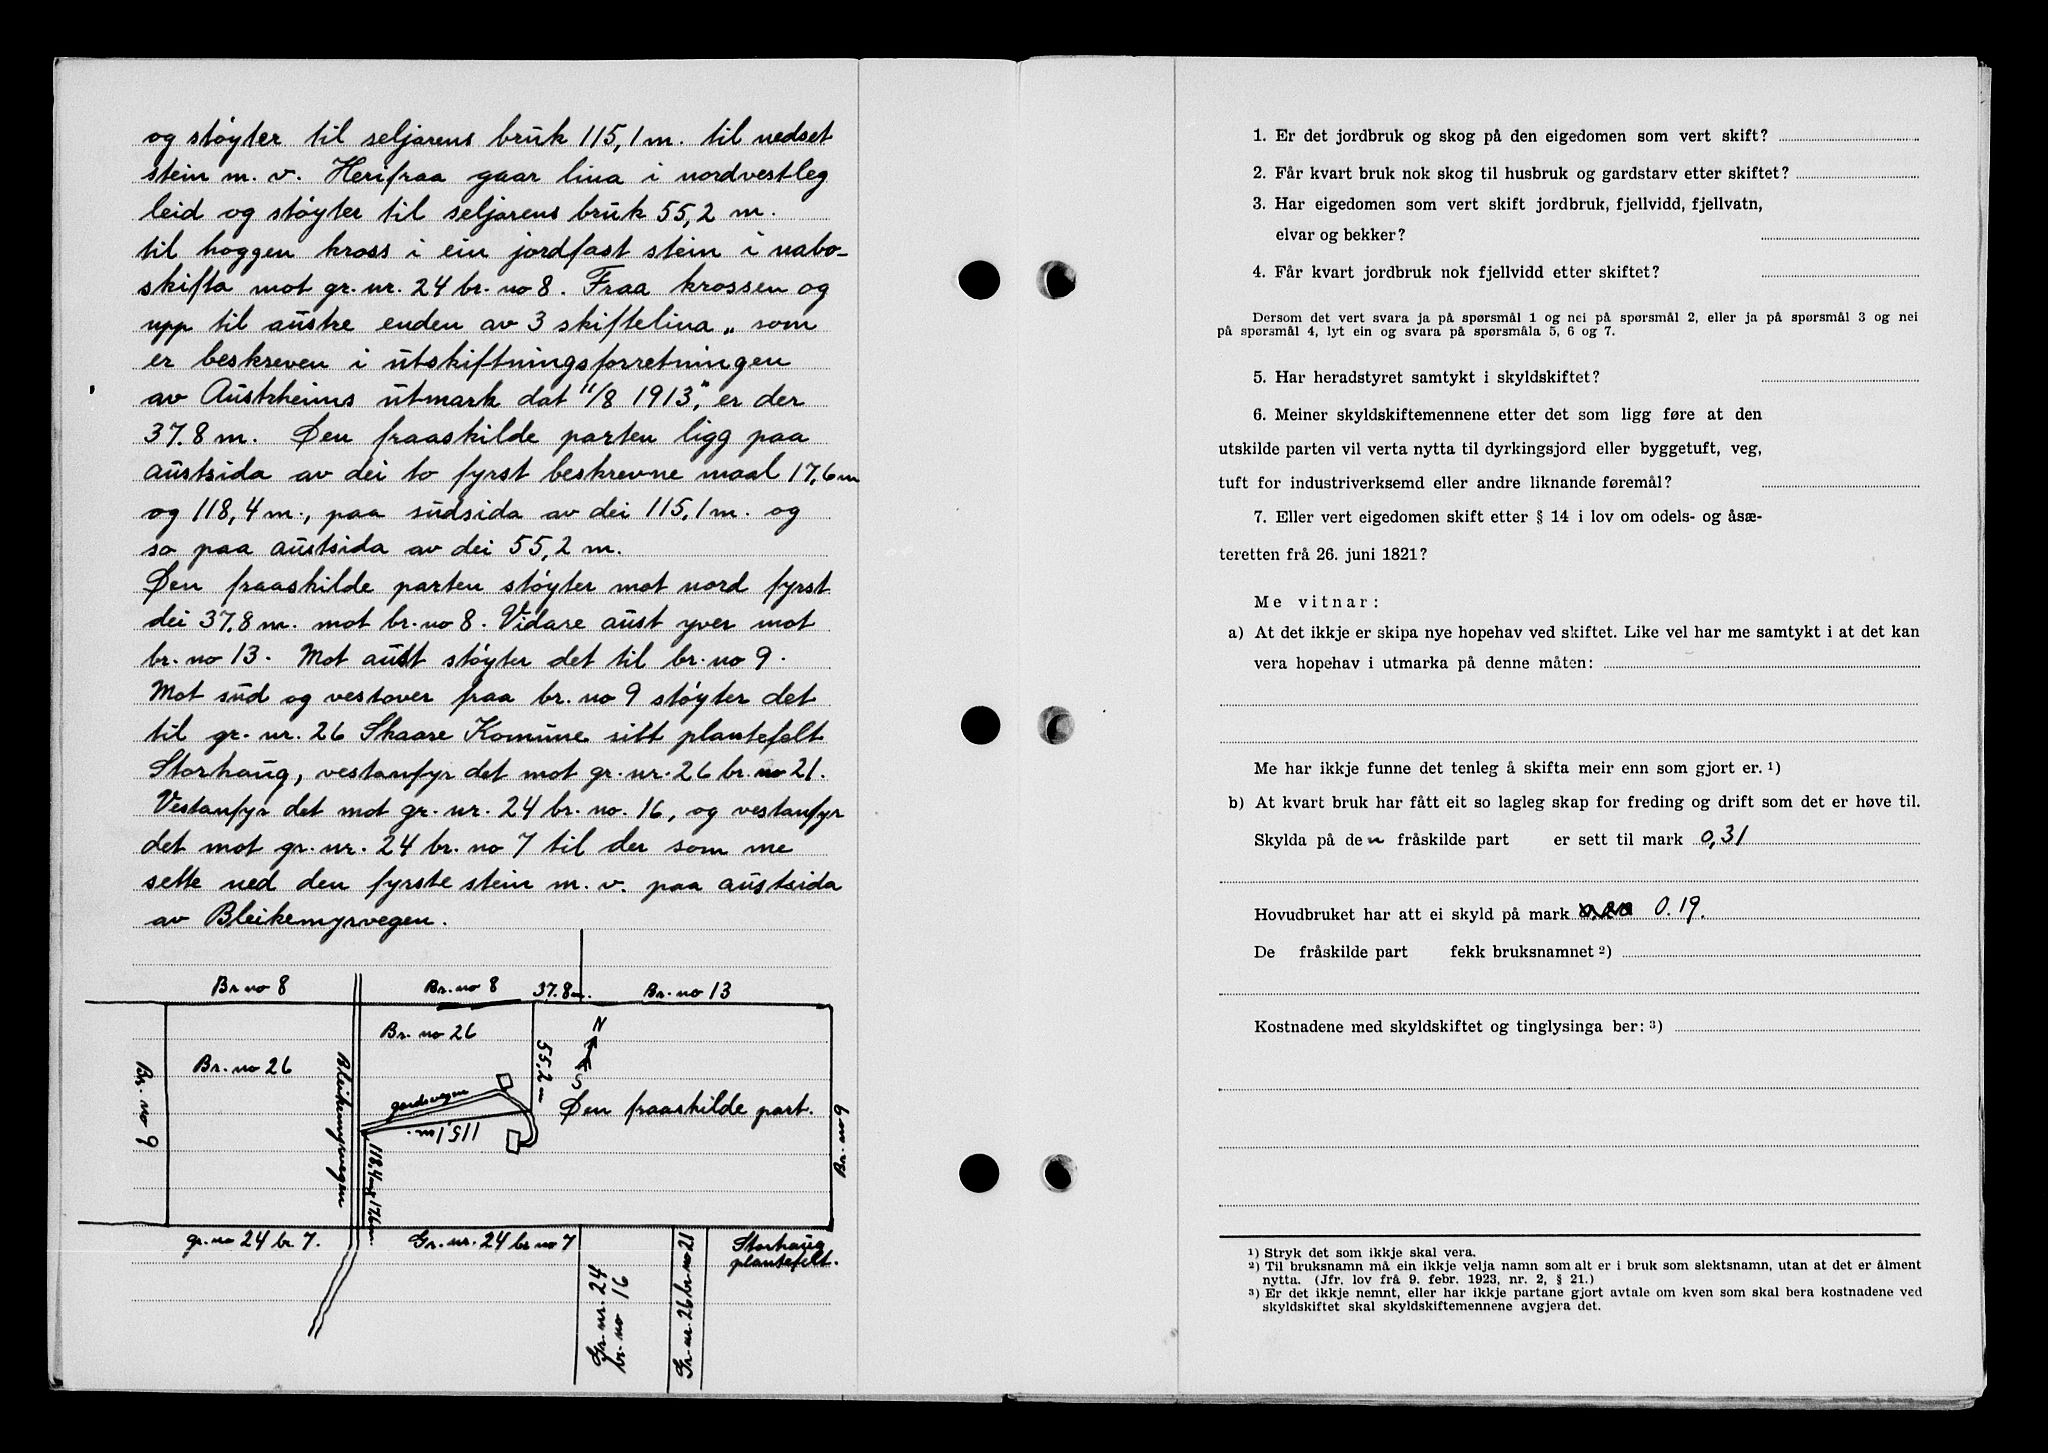 og støyter til seljarens bruk 115,1 m. til nedset
stein m. v. Herifraa gaar lina i nordvestleg
leid og støyter til seljarens bruk 55,2 m.
til hoggen kross i ein jordfast stein i nabo-
skifta mot gr. nr. 24 br. no 8. Fraa krossen og
upp til austre enden av 3 skiftelina „ som
er beskreven i utskiftningsforretningen
av Austrheims utmark dat 11/8 1913," er der
37.8 m. Den fraaskilde parten ligg paa
austsida av dei to fyrst beskrevne maal 17,6 m
og 118,4 m., paa sudsida av dei 115,1 m. og
so paa austsida av dei 55,2 m.
Den fraaskilde parten støyter mot nord fyrst
dei 37,8 m. mot br. no 8. Vidare aust yver mot
br. no 13. Mot aust støyter det til br. no 9.
Mot sud og vestover fraa br. no 9 støyter det
til gr. nr. 26 Skaare Komune sitt plantefelt
Storhaug, vestanfyr det mot gr. nr. 26 br. no 21.
Vestanfyr det mot gr. nr. 24 br. no. 16, og vestanfyr
det mot gr. nr. 24 br. no 7 til der som me
sette ned den fyrste stein m. v. paa austsida
av Bleikemyrvegen.
Br no 8
Br. no 8
37.8 m.
Br. no 13
Br. no 26
Br. no 26
N
S
55,2 m
Br. no 9
Bleikemyrvegen
gardsvegen
115,1 m.
Den fraaskilde part.
Br. no 9
118,4 og 17,6 m.
gr. no 24 br. 7.
Gr. nr. 24 br no 7
Gr. nr. 24
br. no 16
Gr. nr. 26 br. no 21
Storhaug
plantefelt.
1. Er det jordbruk og skog på den eigedomen som vert skift?
2. Får kvart bruk nok skog til husbruk og gardstarv etter skiftet?
3. Har eigedomen som vert skift jordbruk, fjellvidd, fjellvatn,
elvar og bekker?
4. Får kvart jordbruk nok fjellvidd etter skiftet?
Dersom det vert svara ja på spørsmål 1 og nei på spørsmål 2, eller ja på spørsmål 3 og nei
på spørsmål 4, lyt ein og svara på spørsmåla 5, 6 og 7.
5. Har heradstyret samtykt i skyldskiftet?
6. Meiner skyldskiftemennene etter det som ligg føre at den
utskilde parten vil verta nytta til dyrkingsjord eller byggetuft, veg,
tuft for industriverksemd eller andre liknande føremål?
7. Eller vert eigedomen skift etter § 14 i lov om odels- og åsæ-
teretten frå 26. juni 1821?
Me vitnar:
a) At det ikkje er skipa nye hopehav ved skiftet. Like vel har me samtykt i at det kan
vera hopehav i utmarka på denne måten:
Me har ikkje funne det tenleg å skifta meir enn som gjort er. 1)
b) At kvart bruk har fått eit so lagleg skap for freding og drift som det er høve til.
Skylda på den fråskilde part er sett til mark 0,31
Hovudbruket har att ei skyld på mark 0.20 0.19.
De fråskilde part fekk bruksnamnet 2)
Kostnadene med skyldskiftet og tinglysinga ber: 3)
1) Stryk det som ikkje skal vera.
2) Til bruksnamn må ein ikkje velja namn som alt er i bruk som slektsnamn, utan at det er ålment
nytta. (Jfr. lov frå 9. febr. 1923, nr. 2, § 21.)
3) Er det ikkje nemnt, eller har ikkje partane gjort avtale om kven som skal bera kostnadene ved
skyldskiftet skal skyldskiftemennene avgjera det.